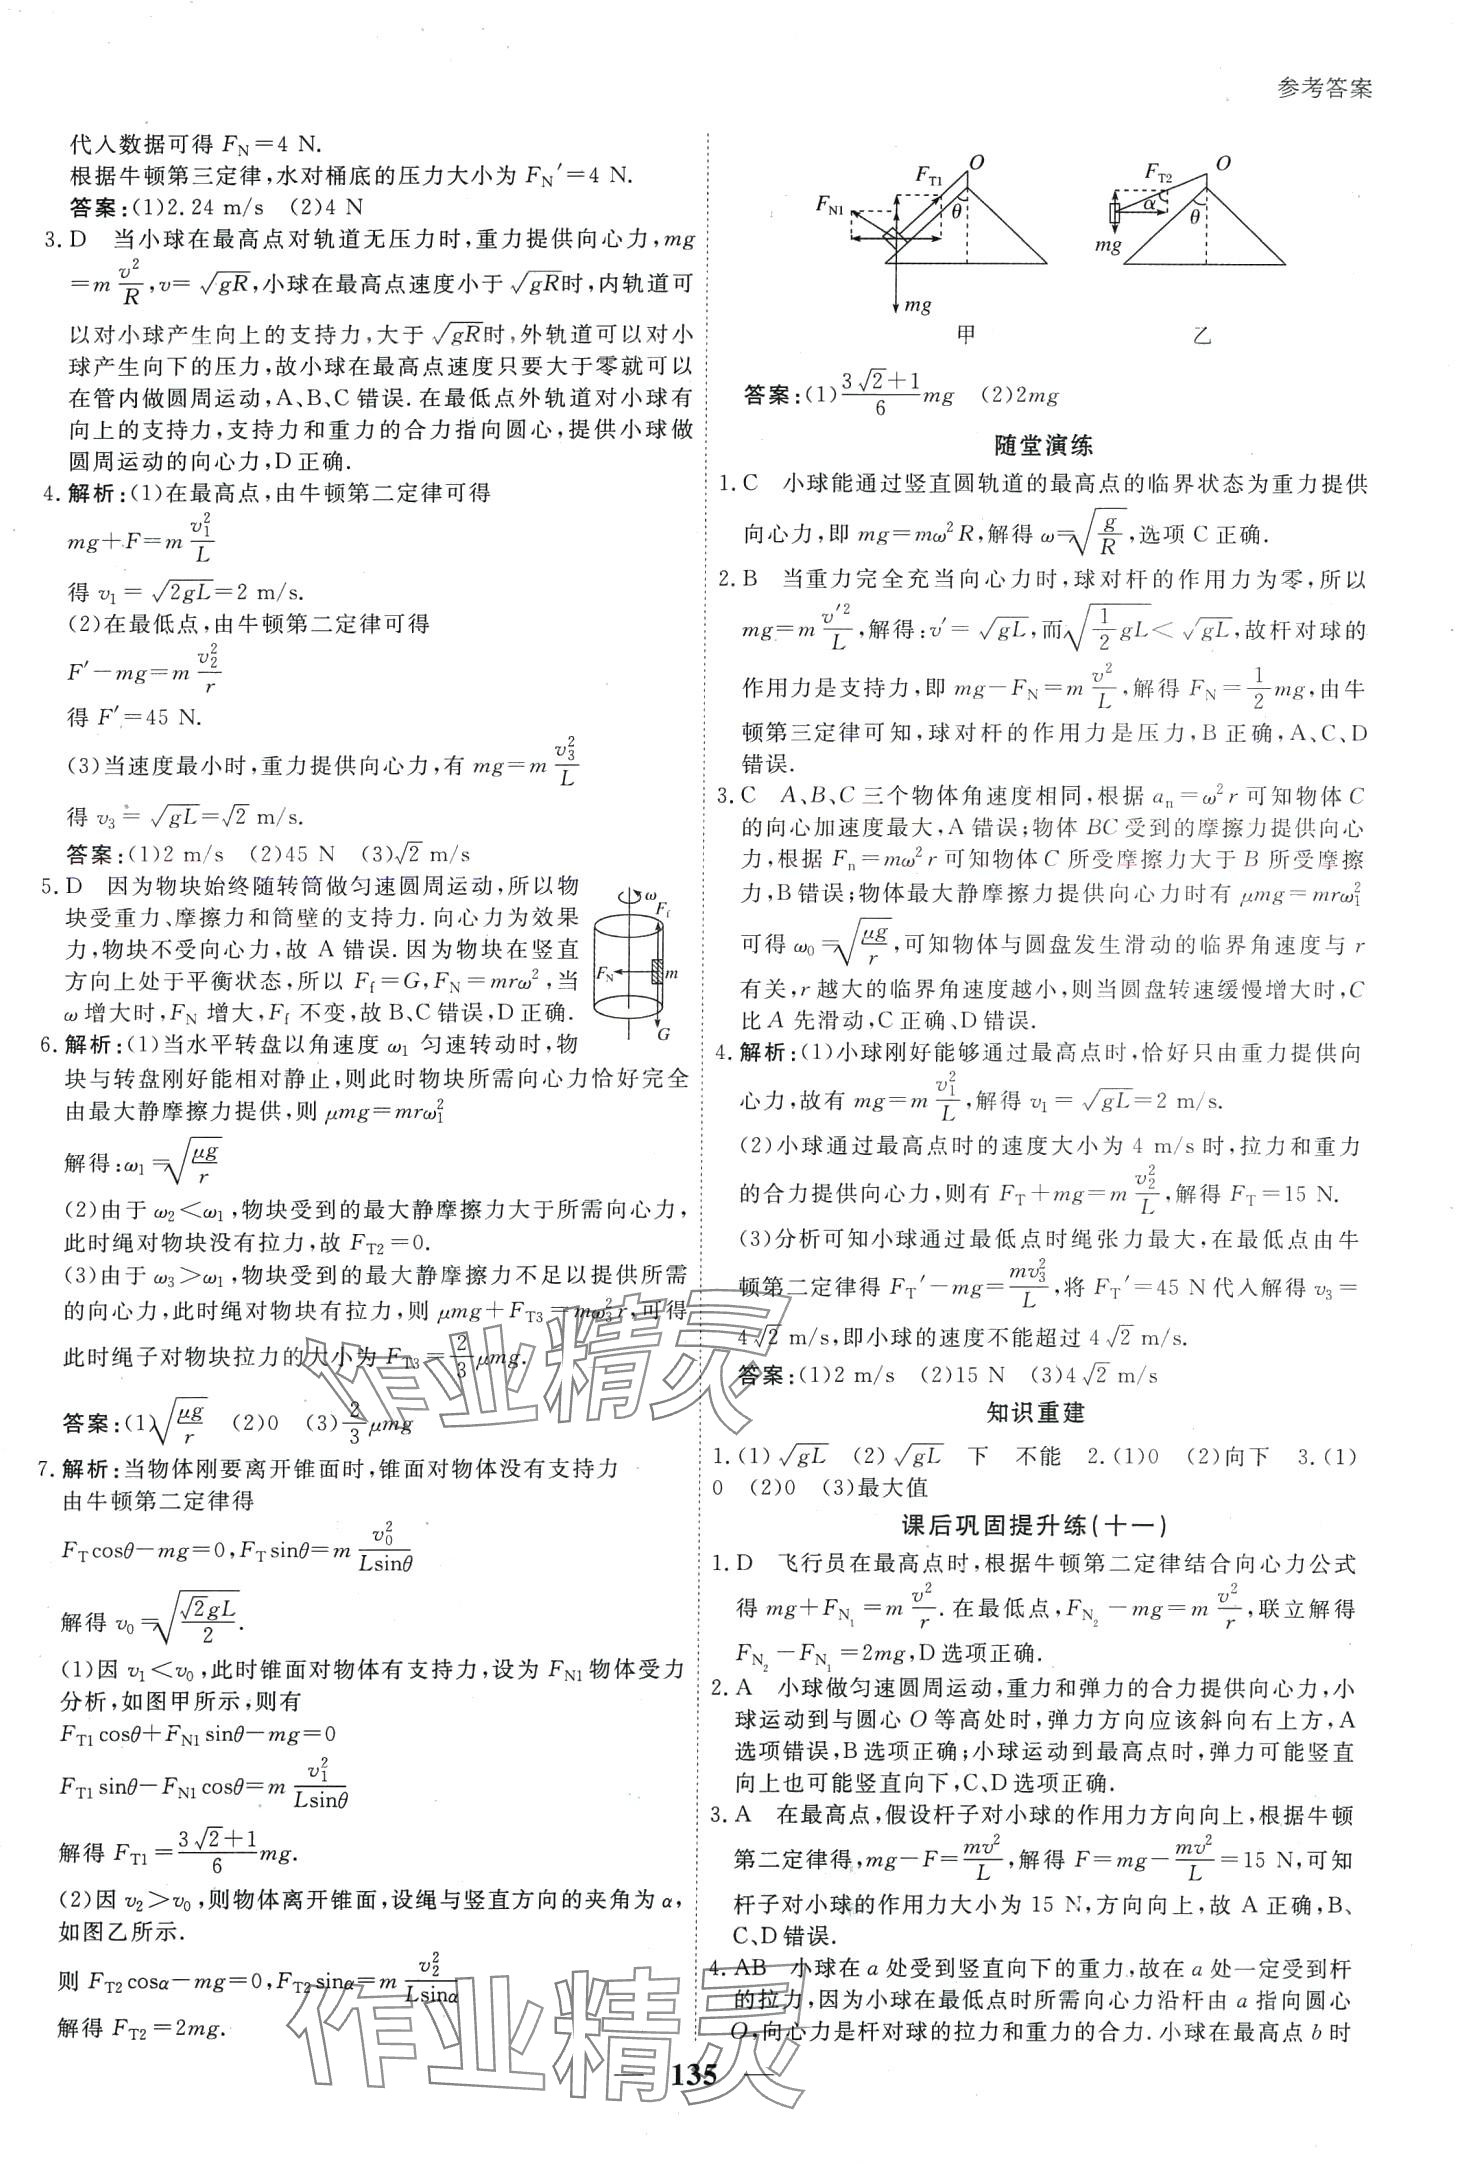 参考答案
代入数据可得 F_N=4 N.
根据牛顿第三定律,水对桶底的压力大小为 F_N′=4 N.
答案:(1)2.24 m/s (2)4 N
3. D 当小球在最高点对轨道无压力时,重力提供向心力,mg
=m v²/R,v=√gR,小球在最高点速度小于√gR时,内轨道可
以对小球产生向上的支持力,大于√gR时,外轨道可以对小
球产生向下的压力,故小球在最高点速度只要大于零就可以
在管内做圆周运动,A、B、C 错误. 在最低点外轨道对小球有
向上的支持力,支持力和重力的合力指向圆心,提供小球做
圆周运动的向心力,D 正确.
4. 解析:(1)在最高点,由牛顿第二定律可得
mg+F=m v₁²/L
得 v₁=√2gL=2 m/s.
(2)在最低点,由牛顿第二定律可得
F′-mg=m v₂²/r
得 F′=45 N.
(3)当速度最小时,重力提供向心力,有 mg=m v₃²/L
得 v₃=√gL=√2 m/s.
答案:(1)2 m/s (2)45 N (3)√2 m/s
5. D 因为物块始终随转筒做匀速圆周运动,所以物
块受重力、摩擦力和筒壁的支持力. 向心力为效果
力,物块不受向心力,故 A 错误. 因为物块在竖直
方向上处于平衡状态,所以 F_f=G,F_N=mrω²,当
ω 增大时,F_N 增大,F_f 不变,故 B、C 错误,D 正确.
ω F_f F_N m G
6. 解析:(1)当水平转盘以角速度 ω₁ 匀速转动时,物
块与转盘刚好能相对静止,则此时物块所需向心力恰好完全
由最大静摩擦力提供,则 μmg=mrω₁²
解得:ω₁=√(μg/r)
(2)由于 ω₂<ω₁,物块受到的最大静摩擦力大于所需向心力,
此时绳对物块没有拉力,故 F_T2=0.
(3)由于 ω₃>ω₁,物块受到的最大静摩擦力不足以提供所需
的向心力,此时绳对物块有拉力,则 μmg+F_T3=mω₃²r,可得
此时绳子对物块拉力的大小为 F_T3=2/3 μmg.
答案:(1)√(μg/r) (2)0 (3)2/3 μmg
7. 解析:当物体刚要离开锥面时,锥面对物体没有支持力
由牛顿第二定律得
F_Tcosθ-mg=0,F_Tsinθ=m v₀²/Lsinθ
解得 v₀=√(√2gL/2).
(1)因 v₁<v₀,此时锥面对物体有支持力,设为 F_N1 物体受力
分析,如图甲所示,则有
F_T1cosθ+F_N1sinθ-mg=0
F_T1sinθ-F_N1cosθ=m v₁²/Lsinθ
解得 F_T1=(3√2+1)/6 mg.
(2)因 v₂>v₀,则物体离开锥面,设绳与竖直方向的夹角为 α,
如图乙所示.
则 F_T2cosα-mg=0,F_T2sinα=m v₂²/Lsinα
解得 F_T2=2mg.
F_T1 O F_N1 θ mg 甲
F_T2 O α θ mg 乙
答案:(1)(3√2+1)/6 mg (2)2mg
随堂演练
1. C 小球能通过竖直圆轨道的最高点的临界状态为重力提供
向心力,即 mg=mω²R,解得 ω=√(g/R),选项 C 正确.
2. B 当重力完全充当向心力时,球对杆的作用力为零,所以
mg=m v′²/L,解得:v′=√gL,而√(1/2 gL)<√gL,故杆对球的
作用力是支持力,即 mg-F_N=m v²/L,解得 F_N=1/2 mg,由牛
顿第三定律可知,球对杆的作用力是压力,B 正确,A、C、D
错误.
3. C A、B、C 三个物体角速度相同,根据 a_n=ω²r 可知物体 C
的向心加速度最大,A 错误;物体 BC 受到的摩擦力提供向心
力,根据 F_n=mω²r 可知物体 C 所受摩擦力大于 B 所受摩擦
力,B 错误;物体最大静摩擦力提供向心力时有 μmg=mrω₁²
可得 ω₀=√(μg/r),可知物体与圆盘发生滑动的临界角速度与 r
有关,r 越大的临界角速度越小,则当圆盘转速缓慢增大时,C
比 A 先滑动,C 正确、D 错误.
4. 解析:(1)小球刚好能够通过最高点时,恰好只由重力提供向
心力,故有 mg=m v₁²/L,解得 v₁=√gL=2 m/s.
(2)小球通过最高点时的速度大小为 4 m/s 时,拉力和重力
的合力提供向心力,则有 F_T+mg=m v₂²/L,解得 F_T=15 N.
(3)分析可知小球通过最低点时绳张力最大,在最低点由牛
顿第二定律得 F_T′-mg=mv₃²/L,将 F_T′=45 N 代入解得 v₃=
4√2 m/s,即小球的速度不能超过 4√2 m/s.
答案:(1)2 m/s (2)15 N (3)4√2 m/s
知识重建
1. (1)√gL (2)√gL 下 不能 2. (1)0 (2)向下 3. (1)
0 (2)0 (3)最大值
课后巩固提升练(十一)
1. D 飞行员在最高点时,根据牛顿第二定律结合向心力公式
得 mg+F_N₁=m v²/r. 在最低点,F_N₂-mg=m v²/r,联立解得
F_N₂-F_N₁=2mg,D 选项正确.
2. A 小球做匀速圆周运动,重力和弹力的合力提供向心力,小
球运动到与圆心 O 等高处时,弹力方向应该斜向右上方,A
选项错误,B 选项正确;小球运动到最高点时,弹力可能竖直
向上也可能竖直向下,C、D 选项正确.
3. A 在最高点,假设杆子对小球的作用力方向向上,根据牛顿
第二定律得,mg-F=mv²/L,解得 F=mg-mv²/L=15 N,可知
杆子对小球的作用力大小为 15 N,方向向上,故 A 正确,B、
C、D 错误.
4. AB 小球在 a 处受到竖直向下的重力,故在 a 处一定受到杆
的拉力,因为小球在最低点时所需向心力沿杆由 a 指向圆心
O,向心力是杆对球的拉力和重力的合力. 小球在最高点 b 时
作业精灵
作业精灵
— 135 —